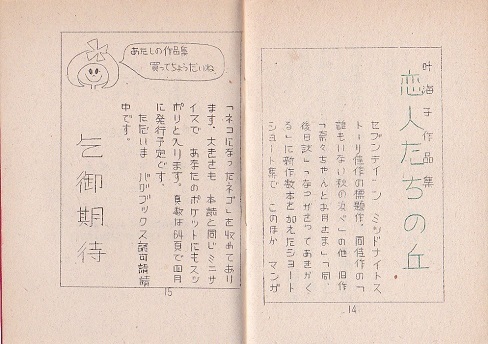 叶海子作品集
恋人たちの丘
セブンティーン ミッドナイトス
トーリィ佳作の標題作、同佳作の「
誰もいない秋の浜べ」の他 旧作
「奈々ちゃんとお月さま」「同、
後日談」「なつがさってあきがく
る」に新作数本を加えたショート
ショート集で、このほか マンガ
14
「ネコになったネゴ」を収めており
ます。大きさも 本誌と同じミニサ
イズで あなたのポケットにもスッ
ポリと入ります。頁数は64頁で四月
に発行予定です。
ただいま バグブックス認可請請
中です。
乞御期待
あたしの作品集
買ってちょうだいね
15